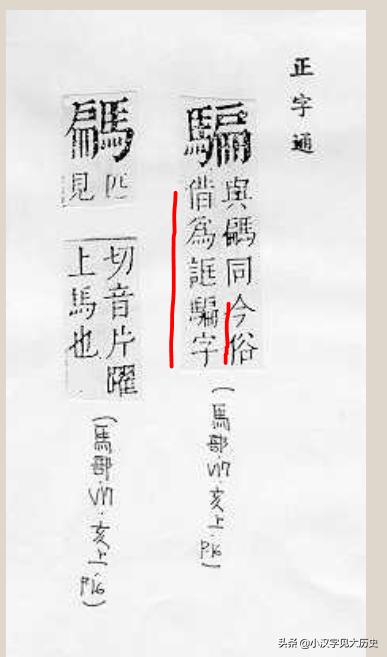 正字通
騙
與騗同今俗
借為誆騙字
(馬部·VII·亥上·P16)
騗
匹
見
切音片躍
上馬也
(馬部·VII·亥上·P16)
头条 @小汉字见大历史